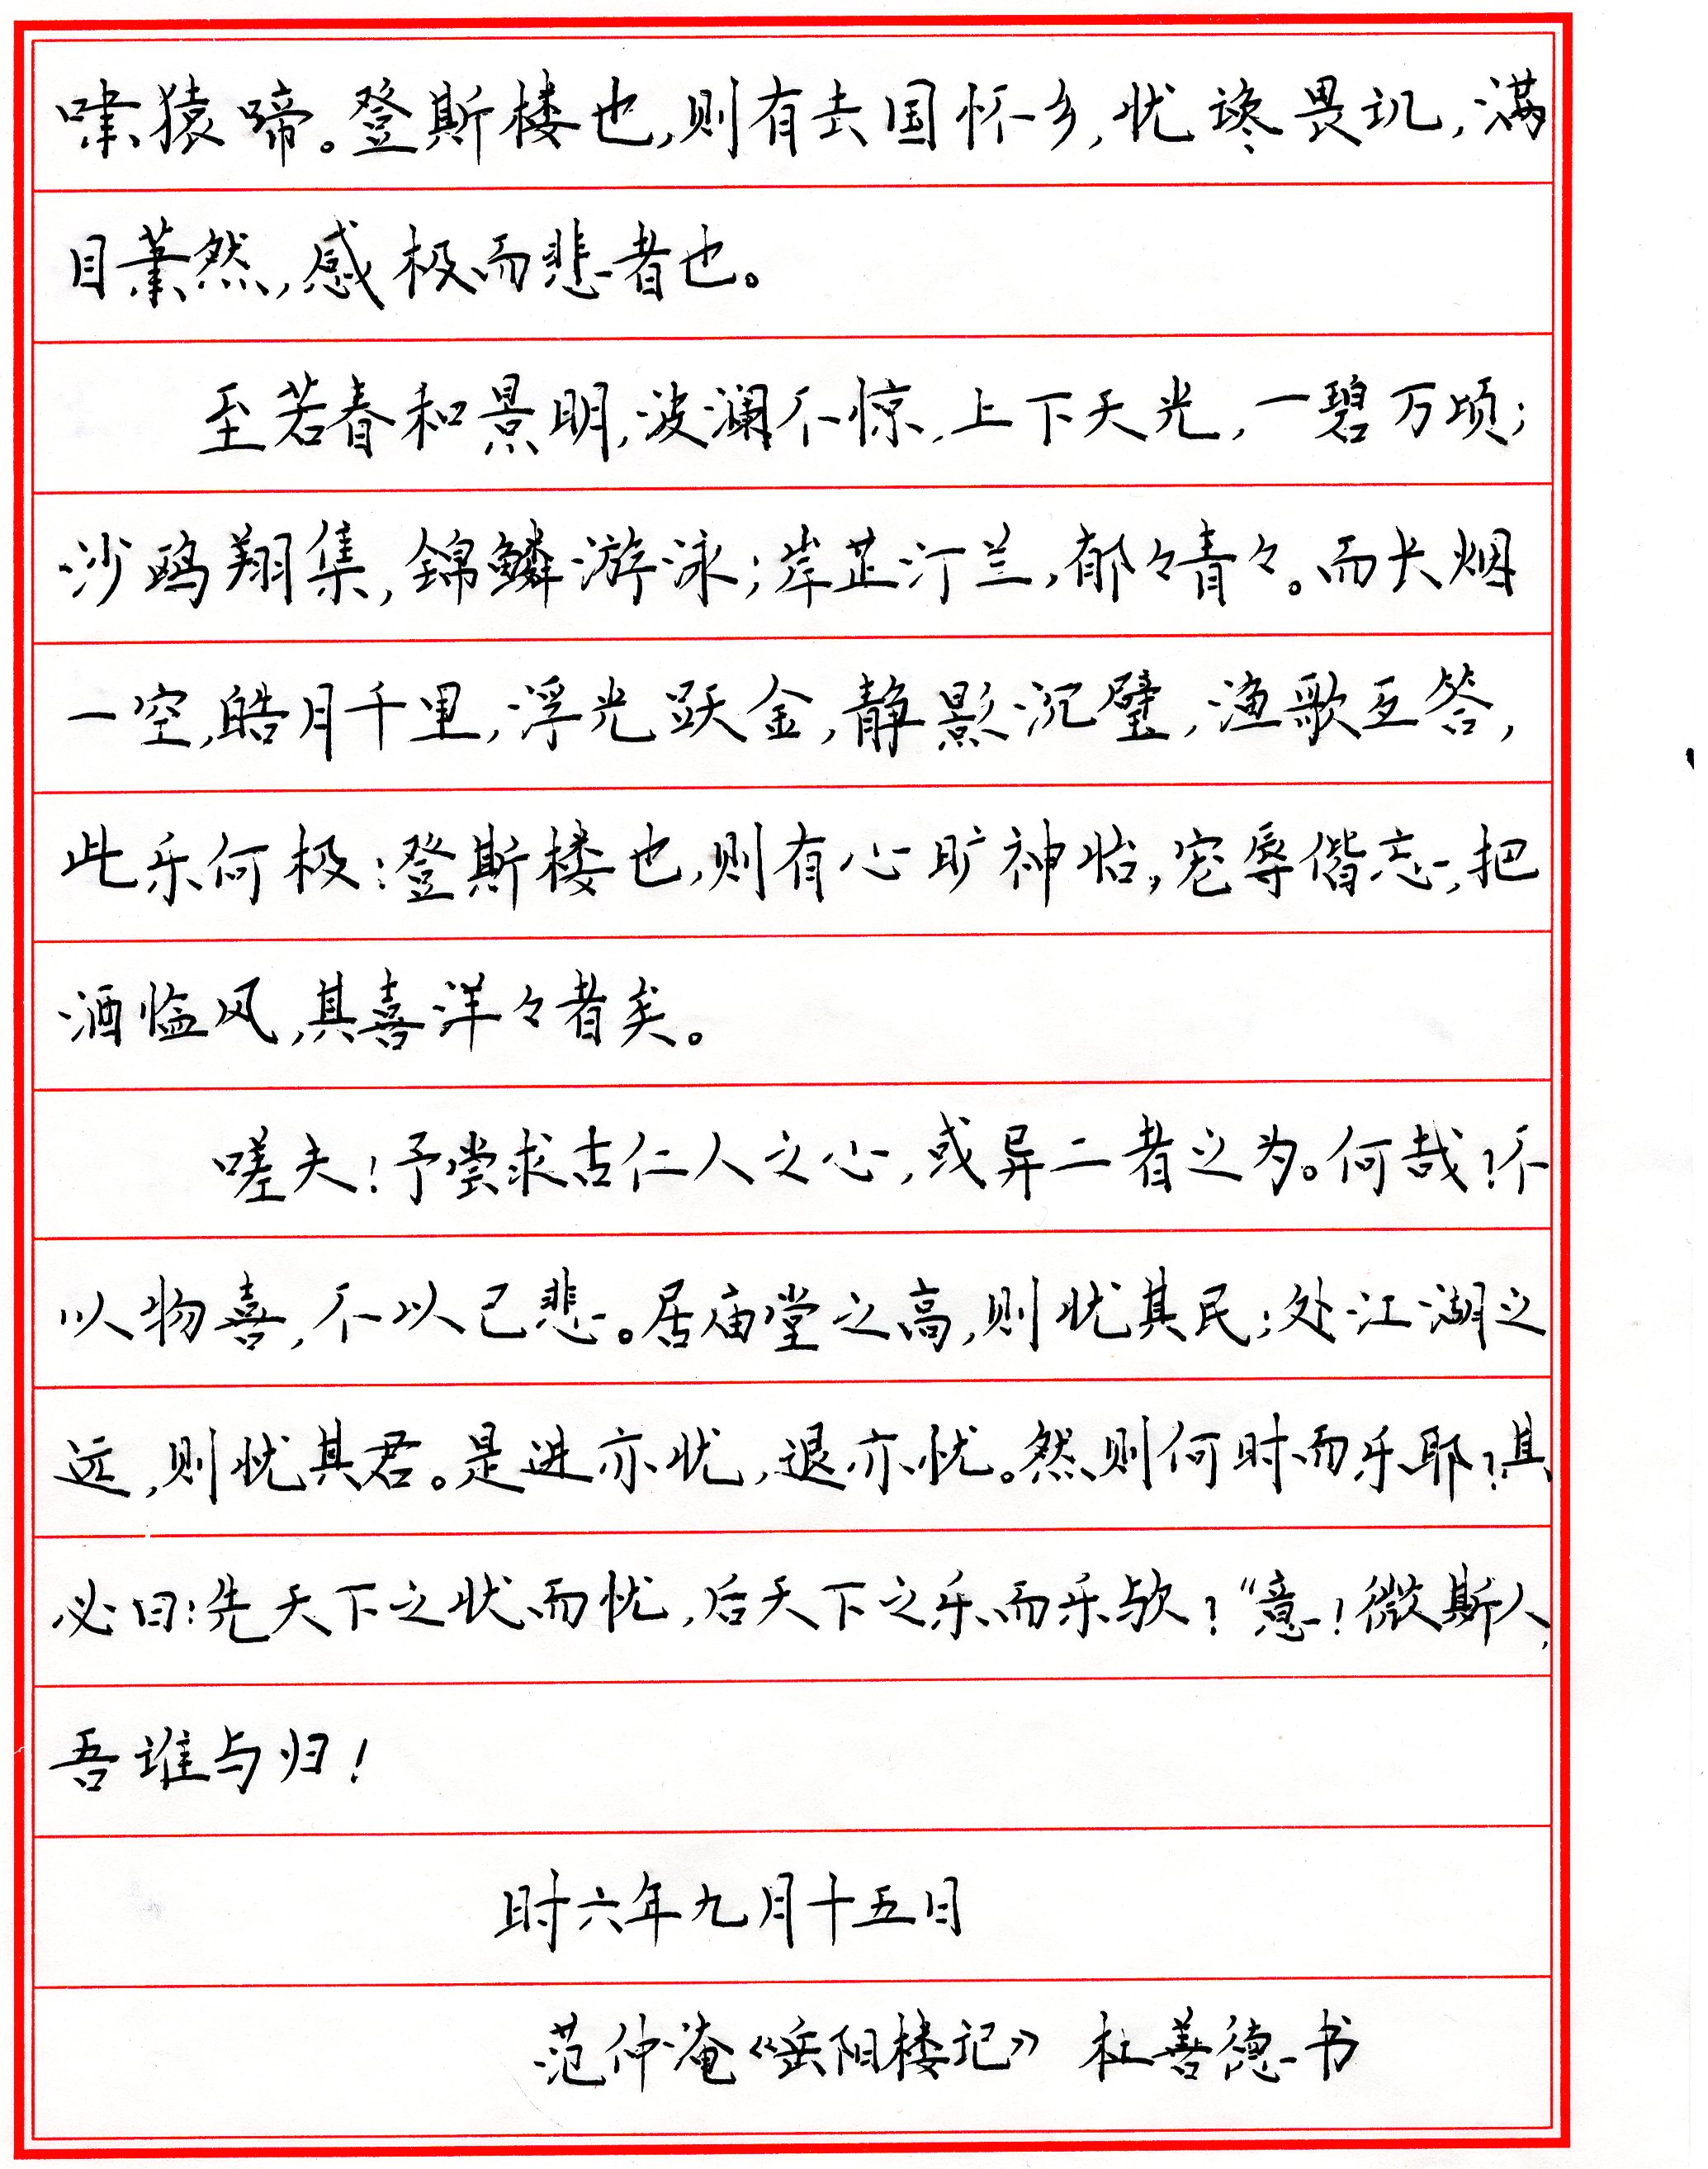 啸猿啼。登斯楼也,则有去国怀乡,忧谗畏讥,满
目萧然,感极而悲者也。
至若春和景明,波澜不惊,上下天光,一碧万顷;
沙鸥翔集,锦鳞游泳;岸芷汀兰,郁々青々。而长烟
一空,皓月千里,浮光跃金,静影沉璧,渔歌互答,
此乐何极;登斯楼也,则有心旷神怡,宠辱偕忘,把
酒临风,其喜洋々者矣。
嗟夫!予尝求古仁人之心,或异二者之为。何哉?不
以物喜,不以己悲。居庙堂之高,则忧其民;处江湖之
远,则忧其君。是进亦忧,退亦忧。然则何时而乐耶?其
必曰:先天下之忧而忧,后天下之乐而乐欤?"意!微斯人,
吾谁与归!
时六年九月十五日
范仲淹《岳阳楼记》 杜善德书